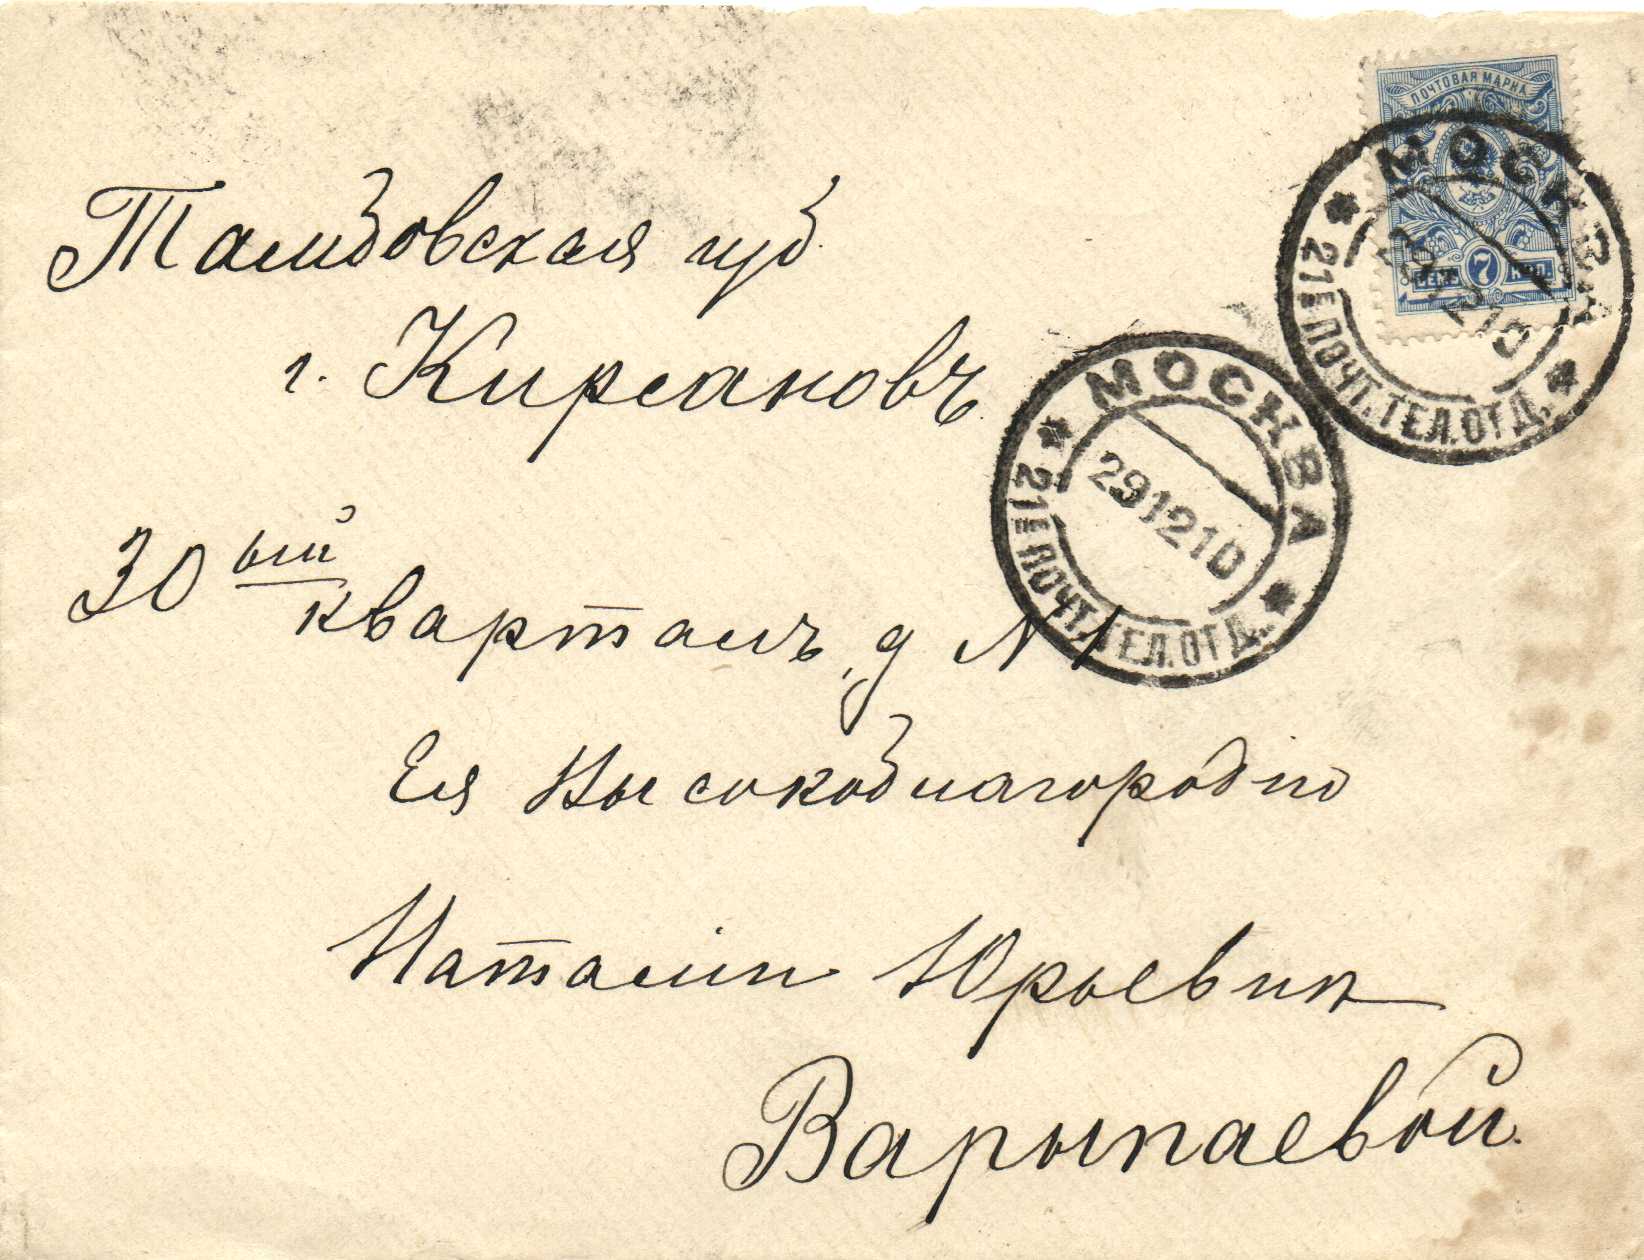 ПОЧТОВАЯ МАРКА
7 КОП.
МОСКВА
21Е ПОЧТ. ТЕЛ. ОТД.
МОСКВА
291210
21Е ПОЧТ. ТЕЛ. ОТД.
Тамбовская губ.
г. Кирсановъ
30ый
кварталъ, д N 1
Ея Высокоблагородію
Наталіи Юрьевнѣ
Варыпаевой.